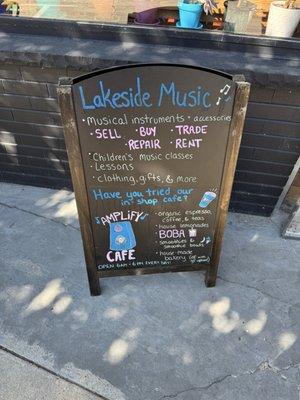 Lakeside Music
• Musical instruments • accessories
• SELL • BUY • TRADE
• REPAIR • RENT
• Children's music classes
• Lessons
• clothing, gifts, & more
Have you tried our
in house cafe?
"AMPLIFY"
CAFE
• organic espresso,
coffee, & teas
• house lemonades
• BOBA
• smoothies &
smoothie bowls
• house made
bakery
OPEN 8AM - 6PM EVERY DAY!